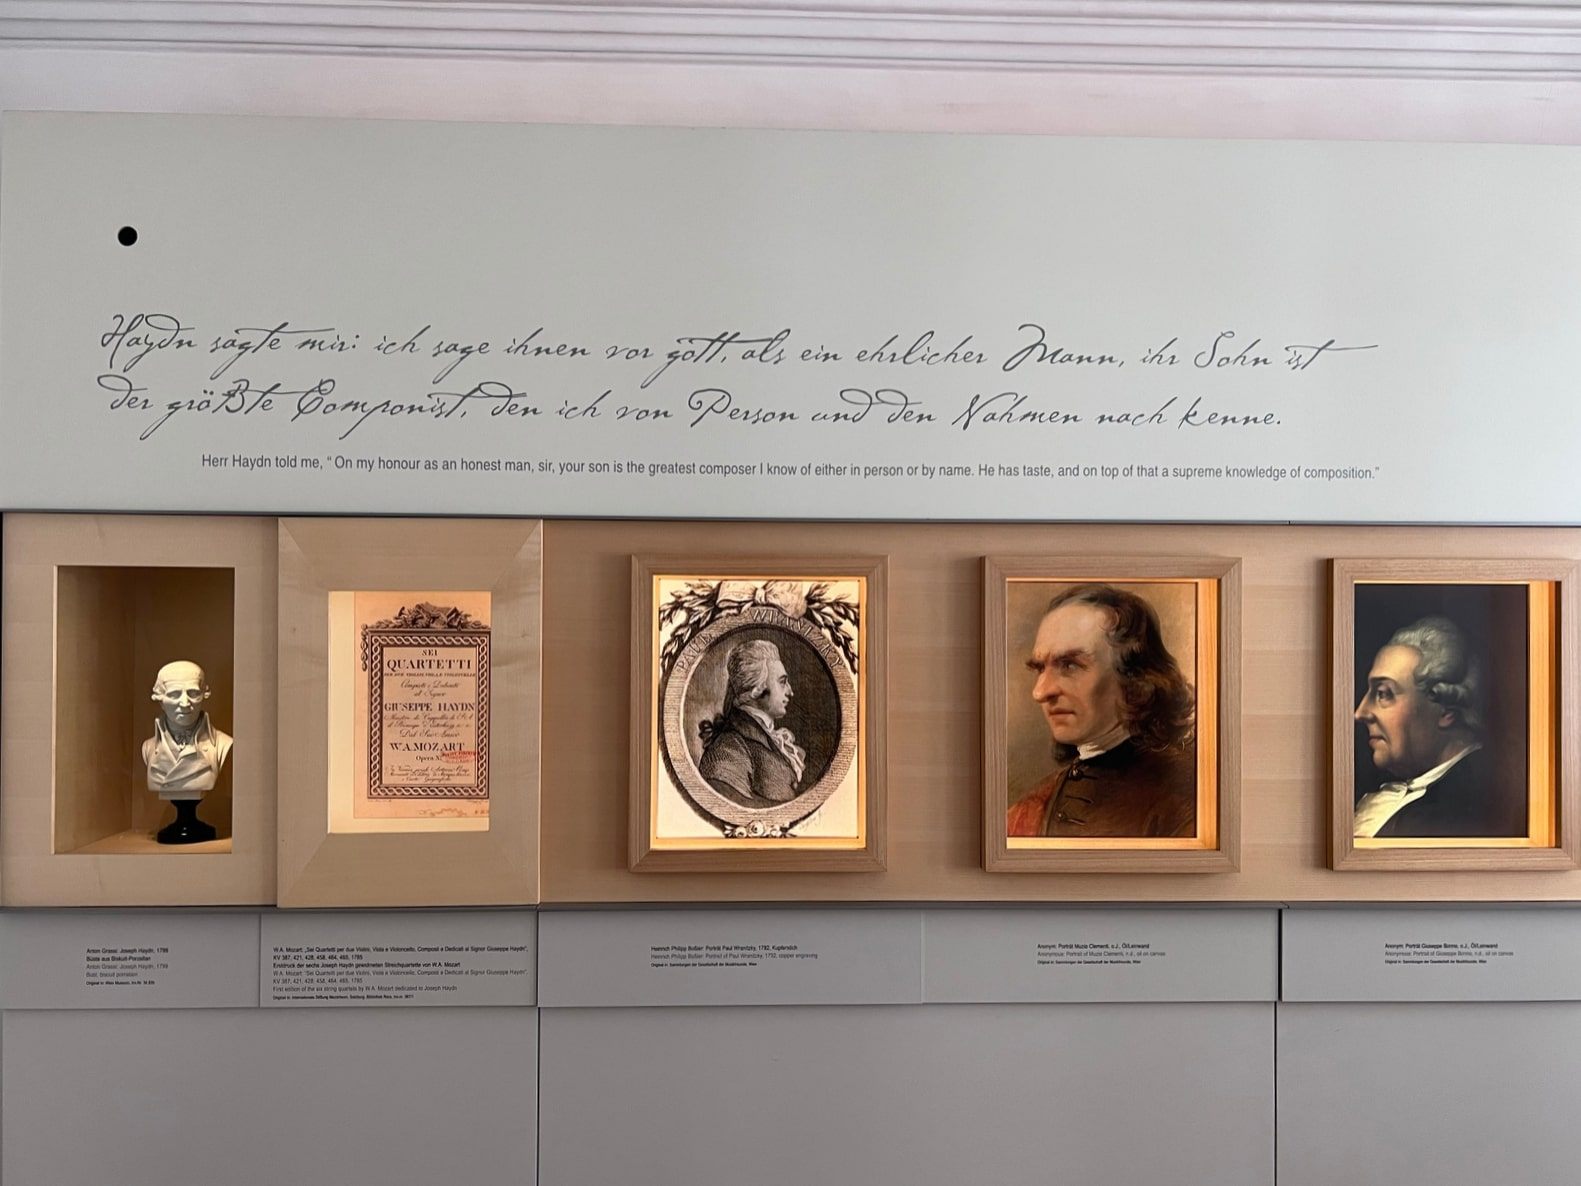 Haydn sagte mir: ich sage ihnen vor gott, als ein ehrlicher Mann, ihr Sohn ist
der größte Componist, den ich von Person und den Nahmen nach kenne.
Herr Haydn told me, “ On my honour as an honest man, sir, your son is the greatest composer I know of either in person or by name. He has taste, and on top of that a supreme knowledge of composition.”
SEI
QUARTETTI
PER DUE VIOLINI, VIOLA, E VIOLONCELLO
Composti e Dedicati
al Signor
GIUSEPPE HAYDN
Maestro di Cappella di S.A.
il Principe d'Esterhazy
Dal Suo Amico
W.A. MOZART
Opera X.
PAUL WRANIZKY
Anton Grassi: Joseph Haydn, 1799
Büste aus Biskuit-Porzellan
Anton Grassi: Joseph Haydn, 1799
Bust, biscuit porcelain
W.A. Mozart: „Sei Quartetti per due Violini, Viola e Violoncello, Composti e Dedicati al Signor Giuseppe Haydn“,
KV 387, 421, 428, 458, 464, 465, 1785
Erstdruck der sechs Joseph Haydn gewidmeten Streichquartette von W.A. Mozart
W.A. Mozart: "Sei Quartetti per due Violini, Viola e Violoncello, Composti e Dedicati al Signor Giuseppe Haydn",
KV 387, 421, 428, 458, 464, 465, 1785
First edition of the six string quartets by W.A. Mozart dedicated to Joseph Haydn
Original in: Internationale Stiftung Mozarteum, Salzburg, Bibliotheca
Heinrich Philipp Boßler: Porträt Paul Wranitzky, 1792, Kupferstich
Heinrich Philipp Boßler: Portrait of Paul Wranitzky, 1792, copper engraving
Original in: Sammlungen der Gesellschaft der Musikfreunde, Wien
Anonym: Porträt Muzio Clementi, o.J., Öl/Leinwand
Anonymous: Portrait of Muzio Clementi, n.d., oil on canvas
Original in: Sammlungen der Gesellschaft der Musikfreunde, Wien
Anonym: Porträt Giuseppe Bonno, o.J., Öl/Leinwand
Anonymous: Portrait of Giuseppe Bonno, n.d., oil on canvas
Original in: Sammlungen der Gesellschaft der Musikfreunde, Wien